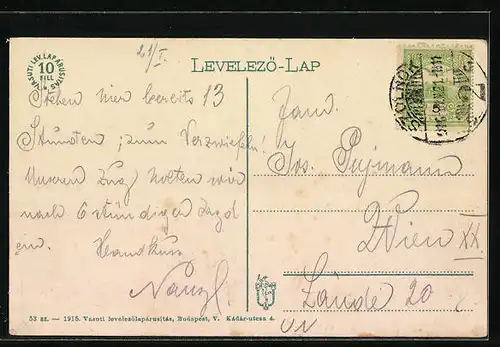 VASUTI LEV. LAPÁRUSITÁS
10
FILL
21/I.
LEVELEZŐ-LAP
SZOLNOK
Stehen hier bereits 13
Stunden, zum Verzweifeln!
Unseren Zug holten wir
nach 6 stündiger Jagd
ein. Handkuss
Jos.
Wien XX.
Lände 20
53 sz. — 1915. Vasuti levelezőlapárusitás, Budapest, V. Kádár-utcza 4.